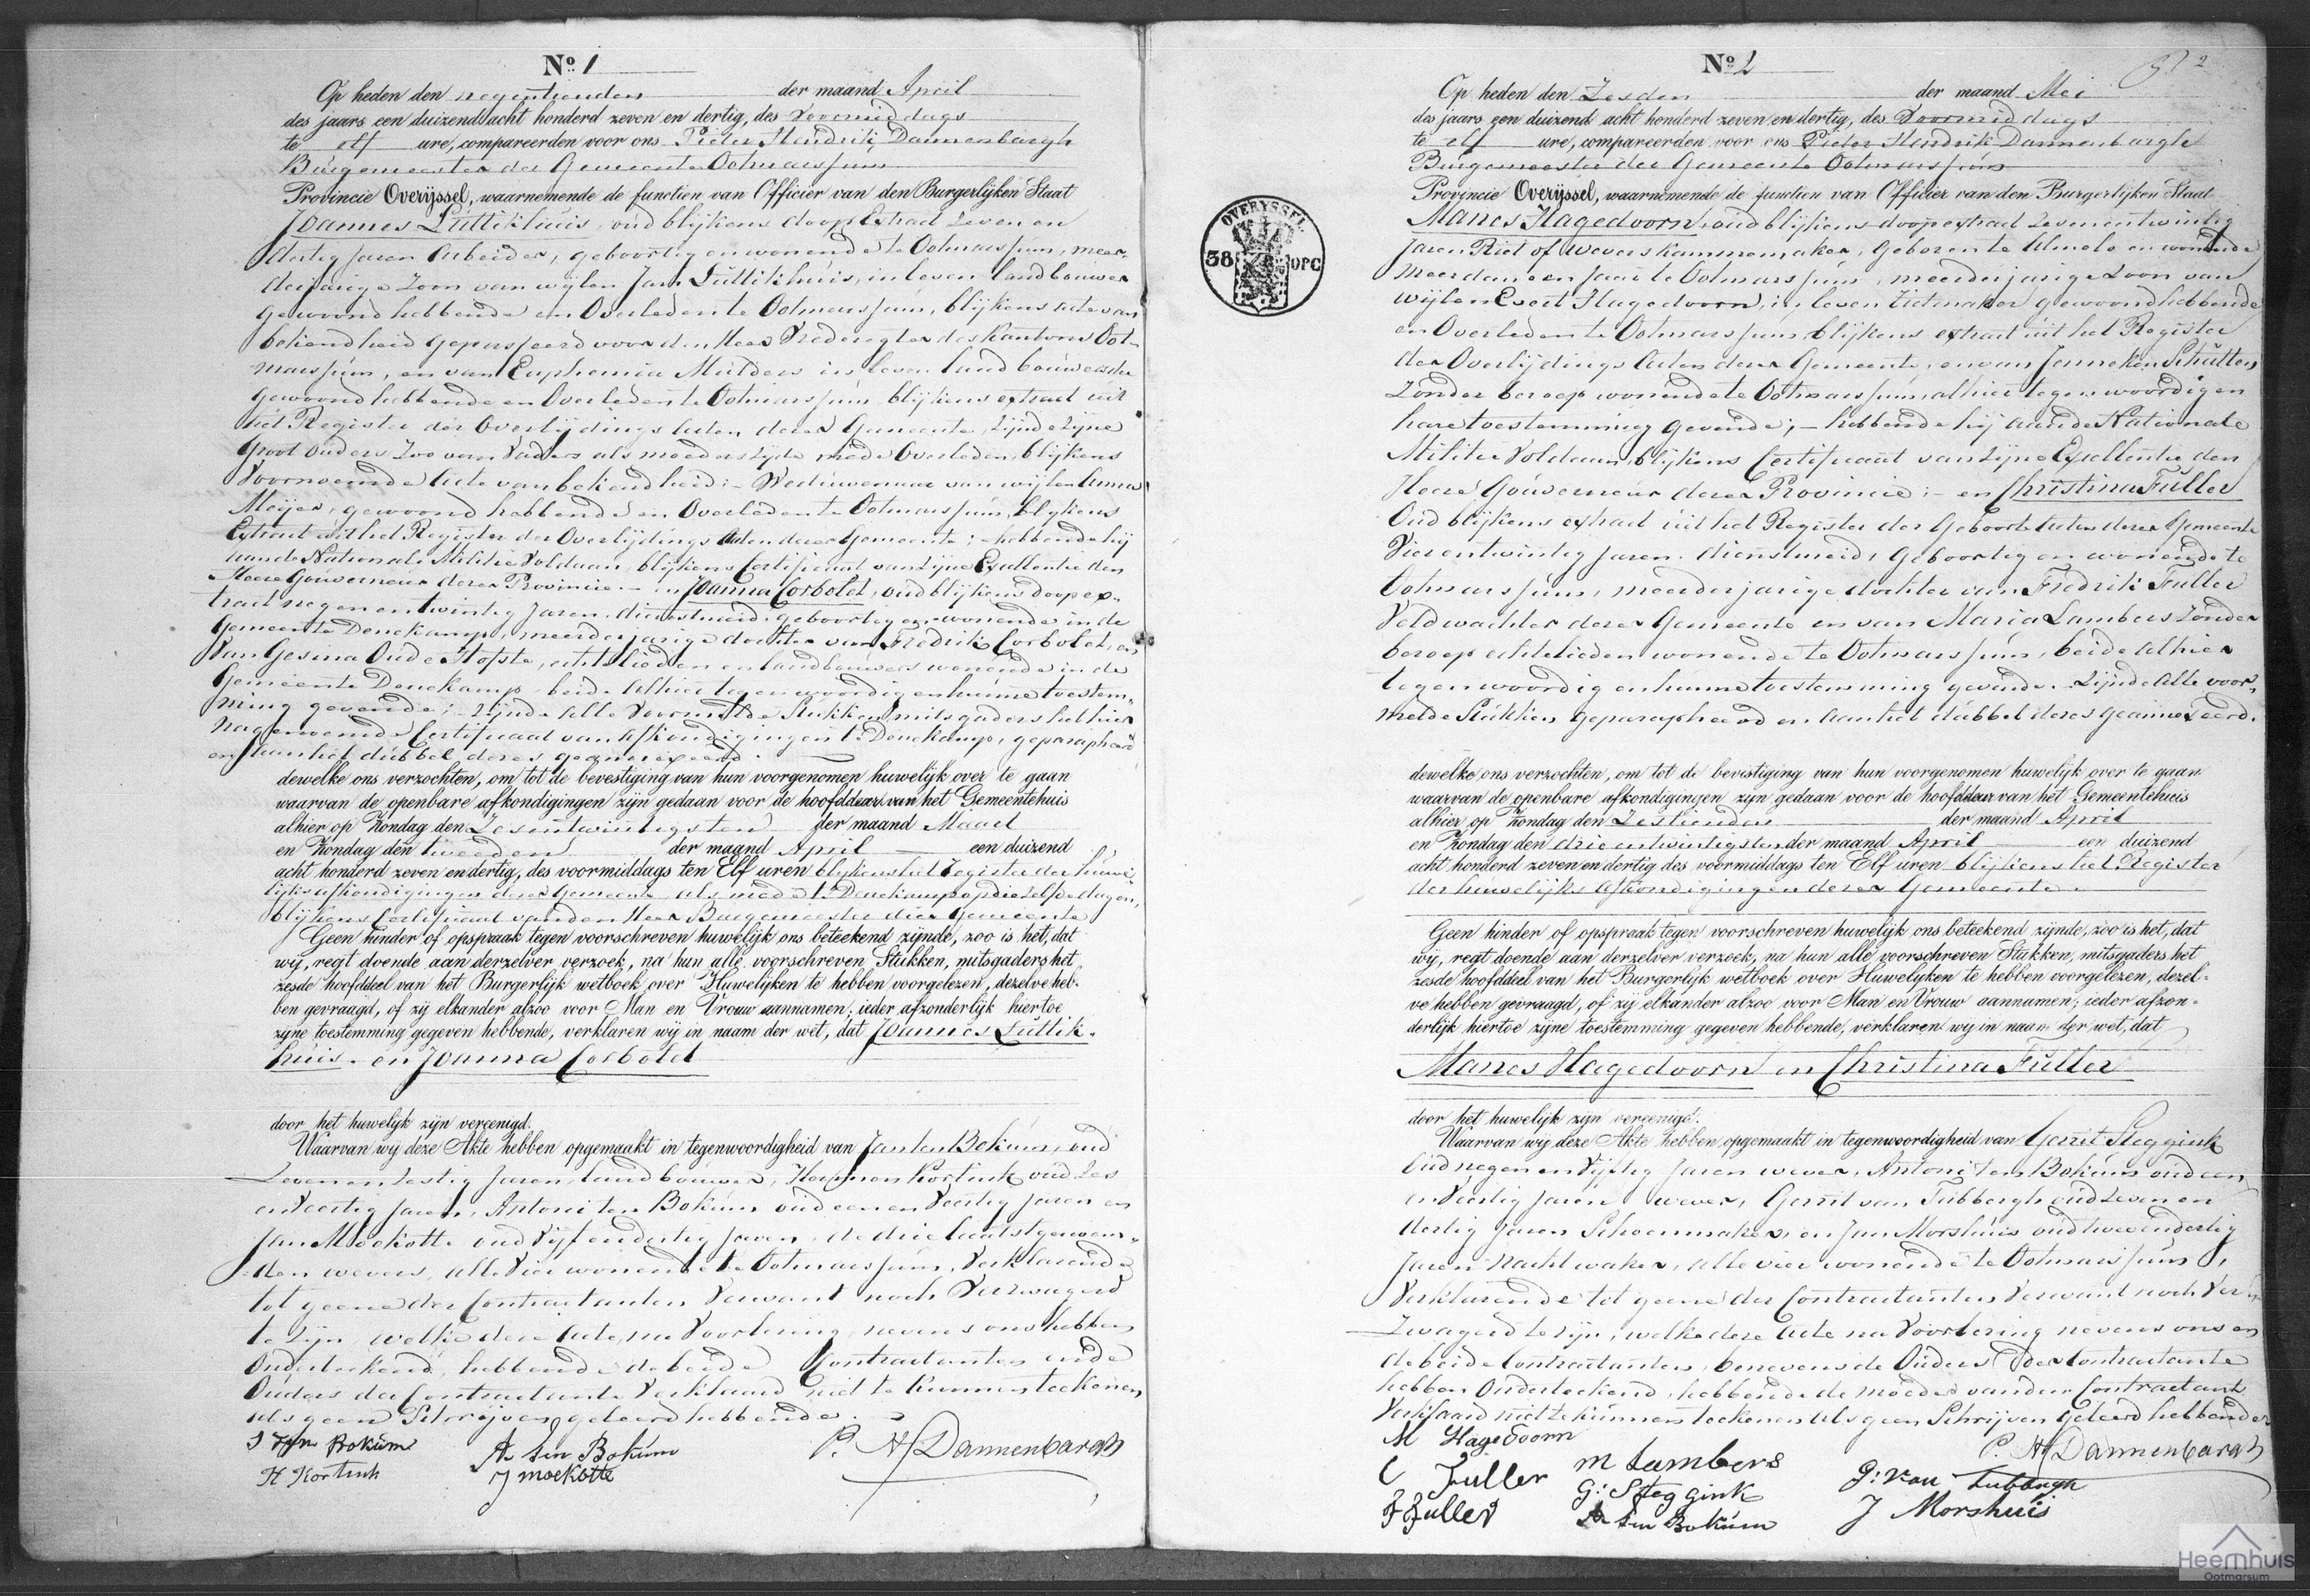 Nº 1
Op heden den negentienden der maand April
des jaars een duizend acht honderd zeven en dertig, des Voormiddags
te elf ure, compareerden voor ons Pieter Hendrik Dannenbargh
Burgemeester der Gemeente Ootmarssum
Provincie Overijssel, waarnemende de functien van Officier van den Burgerlijken Staat
Joannes Luttikhuis, oud blijkens doop Extract zeven en
dertig jaren Arbeider, geboortig en wonende te Ootmarssum, meer-
derjarige zoon van wijlen Jan Luttikhuis, in leven landbouwer
gewoond hebbende en Overleden te Ootmarssum, blijkens acte van
bekendheid gepasseerd voor den Heer Vrederegter des Kantons Oot-
marssum, en van Euphemia Mulders in leven landbouwersche
gewoond hebbende en Overleden te Ootmarssum, blijkens extract uit
het Register der Overlijdings Acten dezer Gemeente, zijnde zijne
Groot Ouders zoo van Vaders als moeders zijde mede Overleden, blijkens
Voornoemde Acte van bekendheid; - Weduwenaar van wijlen Anna
Meijer, gewoond hebbende en Overleden te Ootmarssum, blijkens
Extract uit het Register der Overlijdings Acten dezer Gemeente; - hebbende hij
aan de Nationale Militie Voldaan, blijkens Certificaat van Zijne Excellentie den
Heere Gouverneur dezer Provincie. - en Joanna Corbolet, oud blijkens doop ex-
tract negen en twintig Jaren, dienstmeid, geboortig en wonende in de
Gemeente Denekamp, meerderjarige dochter van Fredrik Corbolet, en
van Gesina Oude Hofste, echtelieden en landbouwers wonende in de
Gemeente Denekamp beide alhier tegenwoordig en hunne toestem-
ming gevende; - zijnde alle Voormelde Stukken mitsgaders het hier
nagenoemde Certificaat van afkondigingen te Denekamp, geparapheerd
en aan het dubbel dezes geannexeerd.
dewelke ons verzochten, om tot de bevestiging van hun voorgenomen huwelijk over te gaan
waarvan de openbare afkondigingen zijn gedaan voor de hoofddeur van het Gemeentehuis
alhier op Zondag den Zesentwintigsten der maand Maart
en Zondag den tweeden der maand April een duizend
acht honderd zeven en dertig, des voormiddags ten Elf uren blijkens het Register der huwe-
lijks afkondigingen dezer Gemeente, als mede te Denekamp op die zelfde dagen,
blijkens Certificaat van den Heer Burgemeester dier Gemeente
Geen hinder of opspraak tegen voorschreven huwelijk ons beteekend zijnde, zoo is het, dat
wij, regt doende aan derzelver verzoek, na hun alle voorschreven Stukken, mitsgaders het
zesde hoofddeel van het Burgerlijk wetboek over Huwelijken te hebben voorgelezen, dezelve heb-
ben gevraagd, of zij elkander alzoo voor Man en Vrouw aannamen; ieder afzonderlijk hiertoe
zijne toestemming gegeven hebbende, verklaren wij in naam der wet, dat Joannes Luttik-
huis en Joanna Corbolet
door het huwelijk zijn vereenigd.
Waarvan wij deze Akte hebben opgemaakt in tegenwoordigheid van Jan ten Bokum, oud
Zeven en zestig jaren, landbouwer, Hermen Kortink oud zes
en veertig Jaren, Antoni ten Bokum oud een en Veertig jaren en
Jan Moekotte oud Vijf en dertig Jaren, de drie laatstgenoem-
den wevers, alle Vier wonende te Ootmarssum, Verklarende
tot geene der Contractanten Verwant noch Verzwagerd
te zijn welke deze Acte, na Voorlezing nevens ons hebben
Onderteekend, hebbende de beide Contractanten en de
Ouders der Contractante Verklaard niet te kunnen teekenen
als geen Schrijven geleerd hebbende.
J ten Bokum
A ten Bokum
P. H. Dannenbargh
H Kortink
J moekotte
Nº 2
2
Op heden den Zesden der maand Mei
des jaars een duizend acht honderd zeven en dertig, des Voormiddags
te elf ure, compareerden voor ons Pieter Hendrik Dannenbargh
Burgemeester der Gemeente Ootmarssum
Provincie Overijssel, waarnemende de functien van Officier van den Burgerlijken Staat
OVERYSSEL.
38 OPC
Manes Hagedoorn, oud blijkens doop extract zevenentwintig
Jaren Riet of weverskammemaker, Geboren te Almelo en wonende
meer dan een jaar te Ootmarssum, meerderjarige zoon van
wijlen Evert Hagedoorn, in leven rietmaker gewoond hebbende
en Overleden te Ootmarssum blijkens extract uit het Register
der Overlijdings Acten dezer Gemeente, en van Janneken Schutten
zonder beroep wonende te Ootmarssum, alhier tegenwoordig en
hare toestemming gevende; - hebbende hij aan de Nationale
Militie Voldaan, blijkens Certificaat van Zijne Excellentie den
Heere Gouverneur dezer Provincie; - en Christina Fuller
Oud blijkens extract uit het Register der Geboorte Acten dezer Gemeente
Vierentwintig Jaren. dienstmeid, Geboortig en wonende te
Ootmarssum, meerderjarige dochter van Fredrik Fuller
Veldwachter dezer Gemeente en van Maria Lambers zonder
beroep echtelieden wonende te Ootmarssum, beide alhier
tegenwoordig en hunne toestemming gevende. - Zijnde Alle voor-
melde Stukken geparapheerd en aan het dubbel dezes geannexeerd.
dewelke ons verzochten, om tot de bevestiging van hun voorgenomen huwelijk over te gaan
waarvan de openbare afkondigingen zijn gedaan voor de hoofddeur van het Gemeentehuis
alhier op Zondag den Zestienden der maand April
en Zondag den drieentwintigsten der maand April een duizend
acht honderd zeven en dertig des voormiddags ten Elf uren blijkens het Register
der huwelijks afkondigingen dezer Gemeente.
Geen hinder of opspraak tegen voorschreven huwelijk ons beteekend zijnde, zoo is het, dat
wij, regt doende aan derzelver verzoek, na hun alle voorschreven Stukken, mitsgaders het
zesde hoofddeel van het Burgerlijk wetboek over Huwelijken te hebben voorgelezen, dezel-
ve hebben gevraagd, of zij elkander alzoo voor Man en Vrouw aannamen; ieder afzon-
derlijk hiertoe zijne toestemming gegeven hebbende, verklaren wij in naam der wet, dat
Manes Hagedoorn en Christina Fuller
door het huwelijk zijn vereenigd.
Waarvan wij deze Akte hebben opgemaakt in tegenwoordigheid van Gerrit Steggink
Oud negen en Vijftig Jaren wever, Antoni ten Bokum oud een
en Veertig Jaren wever, Gerrit van Tubbergh oud zeven en
dertig Jaren Schoenmaker, en Jan Morshuis oud twee en dertig
Jaren Nachtwaker, alle vier wonende te Ootmarssum,
Verklarende tot geene der Contractanten Verwant noch Ver-
zwagerd te zijn, welke deze Acte na Voorlezing nevens ons en
de beide Contractanten, benevens de Ouders der Contractante
hebben Onderteekend, hebbende de moeder van den Contractant
Verklaard niet te kunnen teekenen als geen Schrijven Geleerd hebbende
M Hagedoorn
P. H. Dannenbargh
C Fuller
m Lambers
G: van Tubbergh
F Fuller
G: Steggink
J Morshuis
A ten Bokum
Heemhuis
Ootmarsum